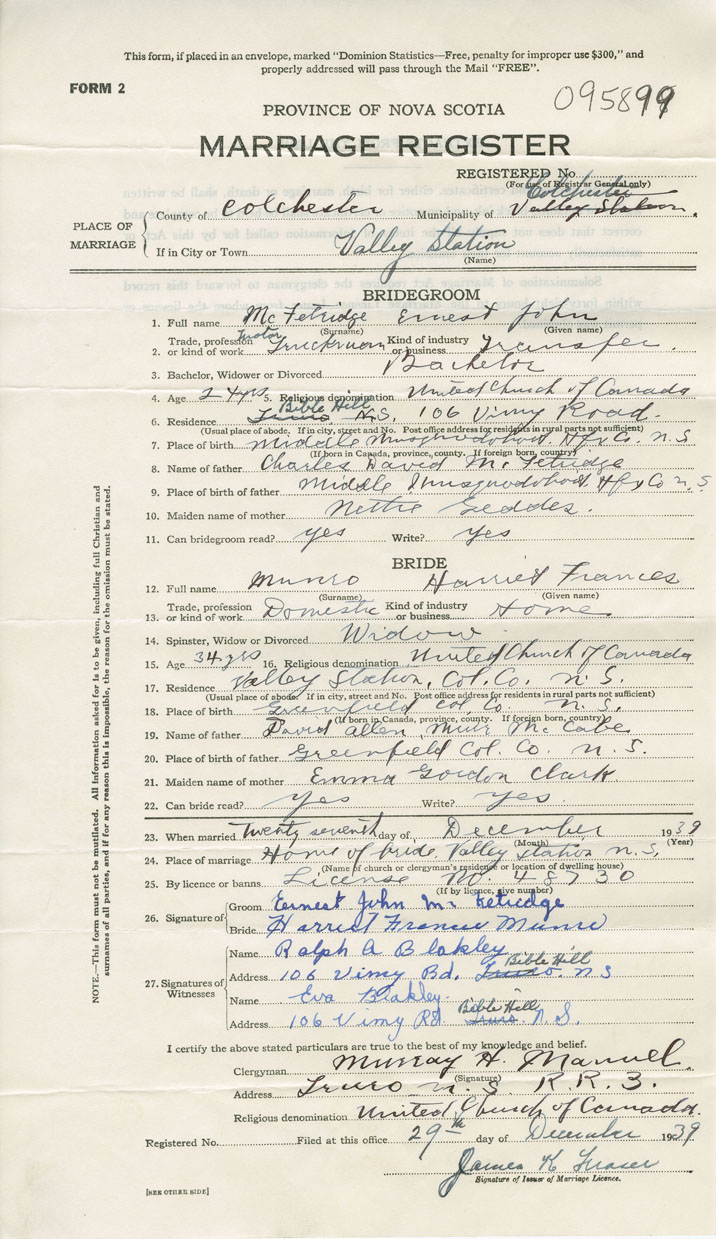 This form, if placed in an envelope, marked "Dominion Statistics—Free, penalty for improper use $300," and
properly addressed will pass through the Mail "FREE".
FORM 2
095899
PROVINCE OF NOVA SCOTIA
MARRIAGE REGISTER
REGISTERED No.
(For use of Registrar General only)
Colchester
PLACE OF MARRIAGE
County of Colchester Municipality of Valley Station.
If in City or Town Valley Station
(Name)
BRIDEGROOM
1. Full name McFetridge Ernest John
(Surname) (Given name)
2. Trade, profession or kind of work Motor Truckman Kind of industry or business Transfer.
3. Bachelor, Widower or Divorced Bachelor
4. Age 24 yrs 5. Religious denomination United Church of Canada
Bible Hill
6. Residence Truro N.S. 106 Vimy Road.
(Usual place of abode. If in city, street and No. Post office address for residents in rural parts not sufficient)
7. Place of birth Middle Musquodoboit Hfx Co. N.S
(If born in Canada, province, county. If foreign born, country)
8. Name of father Charles David McFetridge
9. Place of birth of father Middle Musquodoboit Hfx Co N.S.
10. Maiden name of mother Nettie Geddes.
11. Can bridegroom read? yes Write? yes
BRIDE
12. Full name Munro Harriet Frances
(Surname) (Given name)
13. Trade, profession or kind of work Domestic Kind of industry or business Home
14. Spinster, Widow or Divorced Widow
15. Age 34 yrs 16. Religious denomination United Church of Canada
17. Residence Valley Station, Col. Co. N.S.
(Usual place of abode. If in city, street and No. Post office address for residents in rural parts not sufficient)
18. Place of birth Greenfield Col. Co. N.S.
(If born in Canada, province, county. If foreign born, country)
19. Name of father David Allen Muir McCabe
20. Place of birth of father Greenfield Col. Co. N.S.
21. Maiden name of mother Emma Gordon Clark
22. Can bride read? yes Write? yes.
23. When married twenty seventh day of December 1939
(Month) (Year)
24. Place of marriage Home of bride, Valley Station N.S.
(Name of church or clergyman's residence or location of dwelling house)
25. By licence or banns License No. 48730
(If by licence, give number)
26. Signature of
Groom Ernest John McFetridge
Bride Harriet Frances Munro
27. Signatures of Witnesses
Name Ralph A Blakley
Bible Hill
Address 106 Vimy Rd. Truro. N S
Name Eva Blakley.
Bible Hill
Address 106 Vimy Rd. Truro N.S.
I certify the above stated particulars are true to the best of my knowledge and belief.
Clergyman Murray H. Manuel.
(Signature)
Address Truro N.S. R.R. 3.
Religious denomination United Church of Canada.
Registered No. Filed at this office 29th day of December 1939
James K Fraser
Signature of Issuer of Marriage Licence.
[SEE OTHER SIDE]
NOTE.—This form must not be mutilated. All information asked for is to be given, including full Christian and
surnames of all parties, and if for any reason this is impossible, the reason for the omission must be stated.